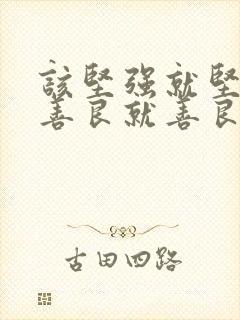 該堅强就堅
善良就善良
古田四路